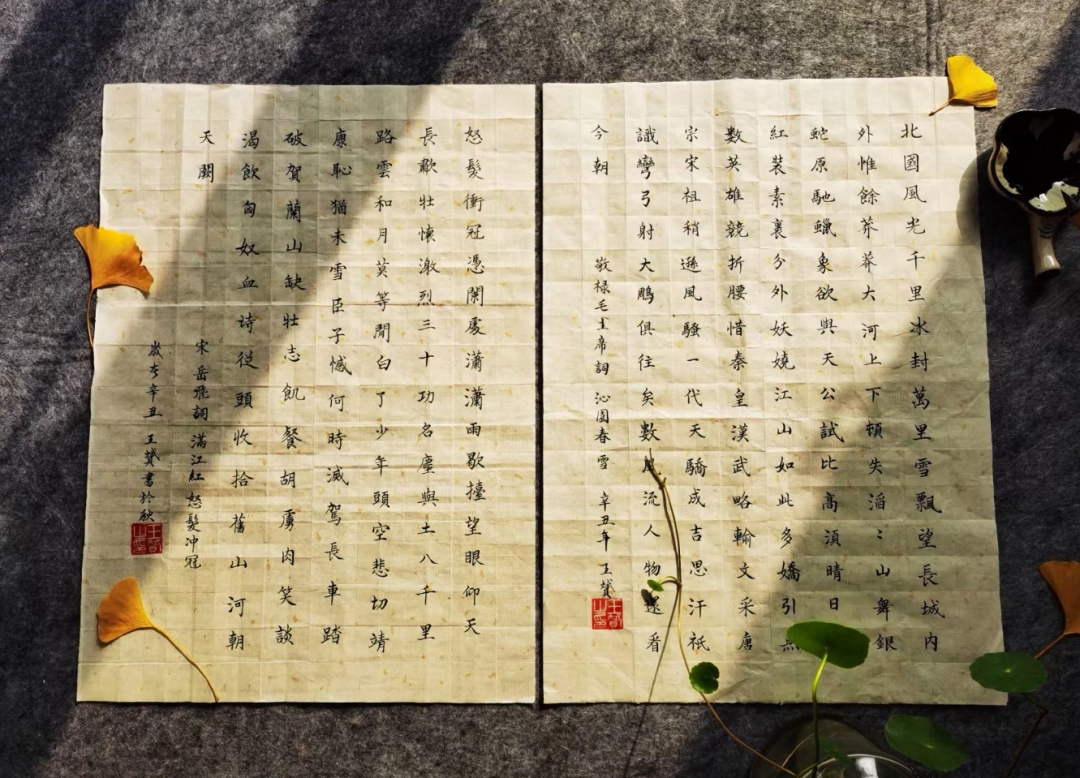 北國風光千里冰封萬里雪飄望長城內
外惟餘莽莽大河上下頓失滔〻山舞銀
蛇原馳蠟象欲與天公試比高須晴日
紅裝素裹分外妖嬈江山如此多嬌引無
數英雄競折腰惜秦皇漢武略輸文采唐
宗宋祖稍遜風騷一代天驕成吉思汗祇
識彎弓射大鵰俱往矣數風流人物還看
今朝
敬祿毛主席詞 沁園春雪 辛丑年 王贇
怒髮衝冠憑闌處瀟瀟雨歇擡望眼仰天
長歗壯懷激烈三十功名塵與土八千里
路雲和月莫等閒白了少年頭空悲切靖
康恥猶未雪臣子憾何時滅駕長車踏
破賀蘭山缺壯志飢餐胡虜肉笑談
渴飲匈奴血待從頭收拾舊山河朝
天闕
宋岳飛詞 滿江紅 怒髮冲冠
歲在辛丑 王贇書於秋